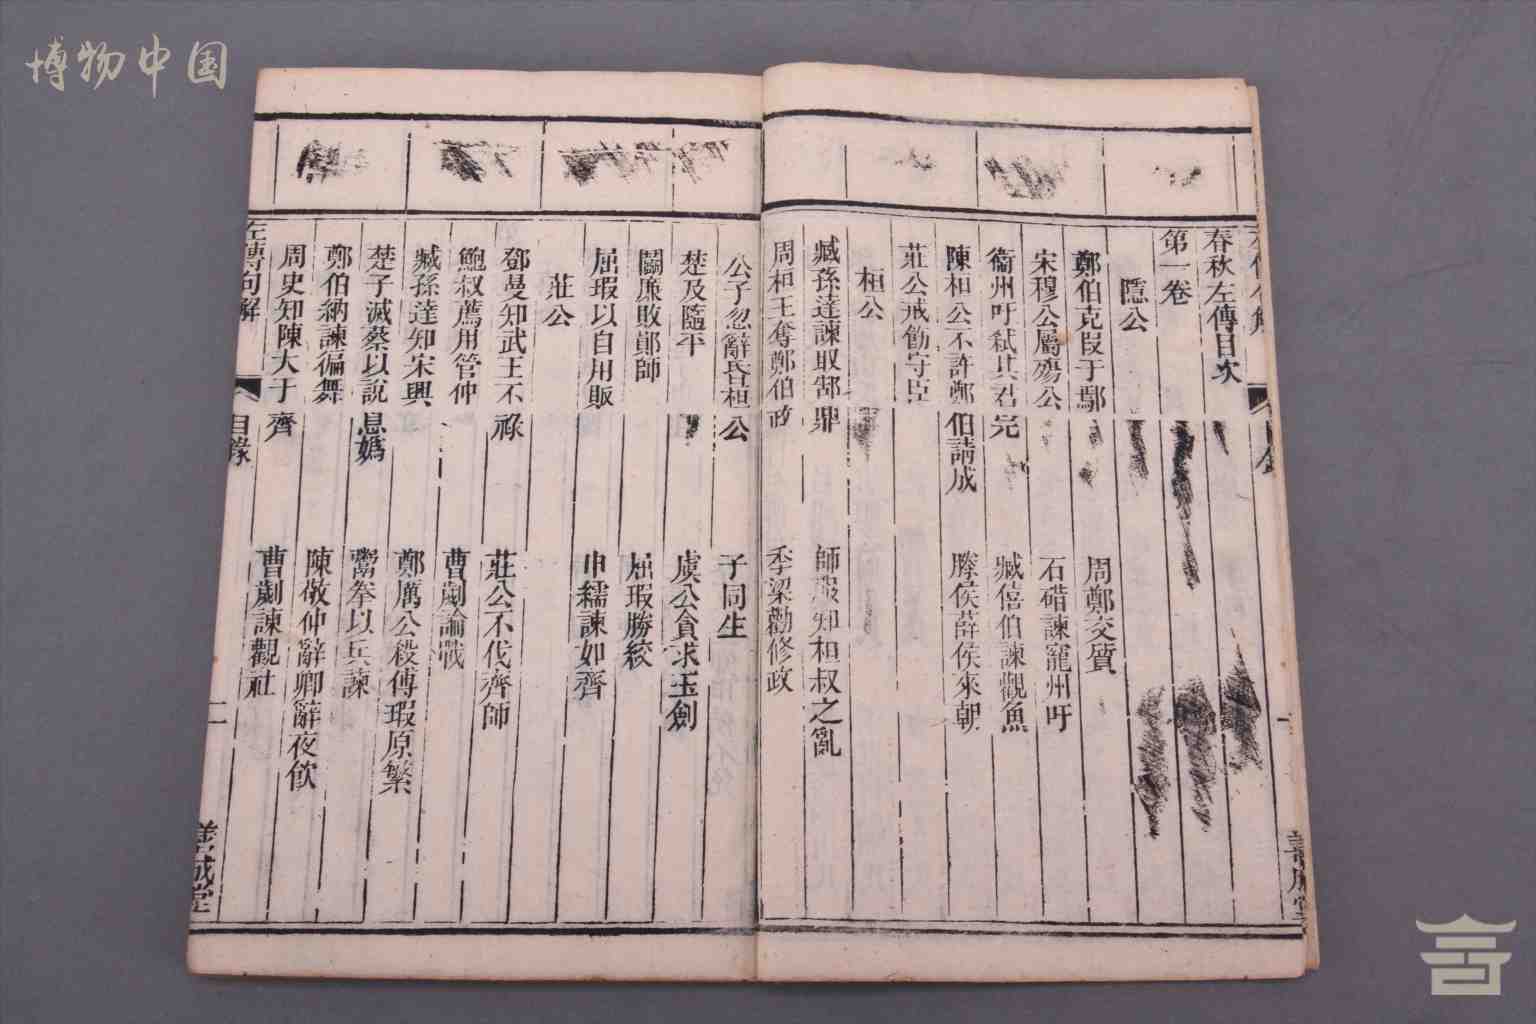 博物中国
春秋左傳目次
第一卷
隱公
鄭伯克段于鄢
周鄭交質
宋穆公屬殤公
石碏諫寵州吁
衞州吁弒其君完
臧僖伯諫觀魚
陳桓公不許鄭伯請成
滕侯薛侯來朝
莊公戒飭守臣
桓公
臧孫達諫取郜鼎
師服知桓叔之亂
周桓王奪鄭伯政
季梁勸修政
公子忽辭昏桓公
子同生
楚及隨平
虞公貪求玉劍
鬬廉敗鄖師
屈瑕勝絞
屈瑕以自用敗
申繻諫如齊
莊公
鄧曼知武王不祿
莊公不伐齊師
鮑叔薦用管仲
曹劌論戰
臧孫達知宋興
鄭厲公殺傅瑕原繁
楚子滅蔡以說息媯
鬻拳以兵諫
鄭伯納諫徧舞
陳敬仲辭卿辭夜飲
周史知陳大于齊
曹劌諫觀社
左傳句解
目錄
二
善成堂